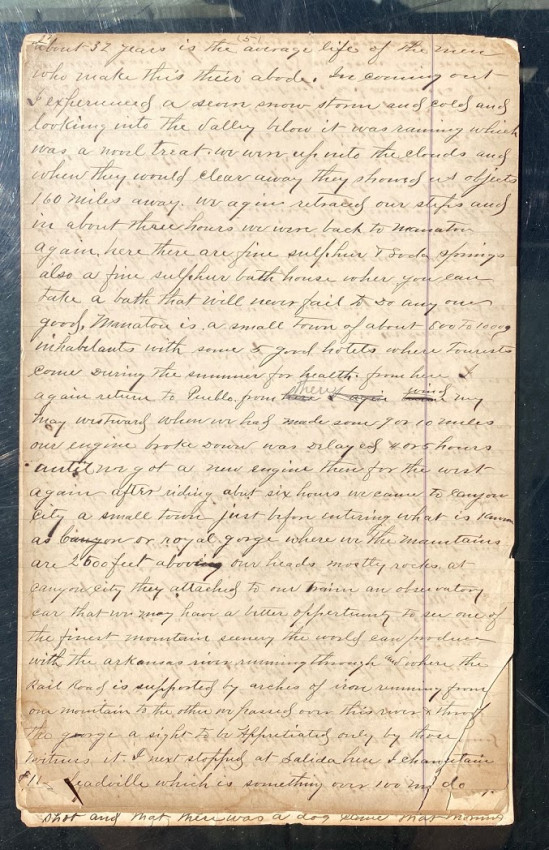 (5)
about 32 years is the average life of the men
who make this their abode. In coming out
I experienced a snow storm and cold and
looking into the valley below it was raining which
was a novel treat. we were up into the clouds and
when they would clear away they showed us objects
160 miles away. we again retraced our steps and
in about three hours we were back to Manatou
again, here there are fine sulphur & Soda springs
also a fine sulphur bath house wher you can
take a bath that will never fail to do any one
good, Manatou is a small town of about 800 to 1000
inhabitants with some good hotels where Tourists
come During the summer for health. from here I
again return to Pueblo. from there I again my
way westward when we had made some 9 or 10 miles
our engine broke Down was Delayed 4 or 5 hours
until we got a new engine then for the west
again after riding abut six hours we came to Canyon
City a small town just before entering what is known
as Canyon or royal gorge where we the mountains
are 2500 feet above our heads mostly rocks. at
canyon city they attached to our train an observatory
car that we may have a better oppertunity to see one of
the finest mountain scenery the world can produce
with the arkansas river running through and where the
Rail Road is supported by arches of iron running from
one mountain to the other we passed over this river & through
the gorge a sight to be Appreciated only by those
witness it. I next stopped at Salida here I
Leadville which is something over 100 mi
shot and that there was a dog that morning